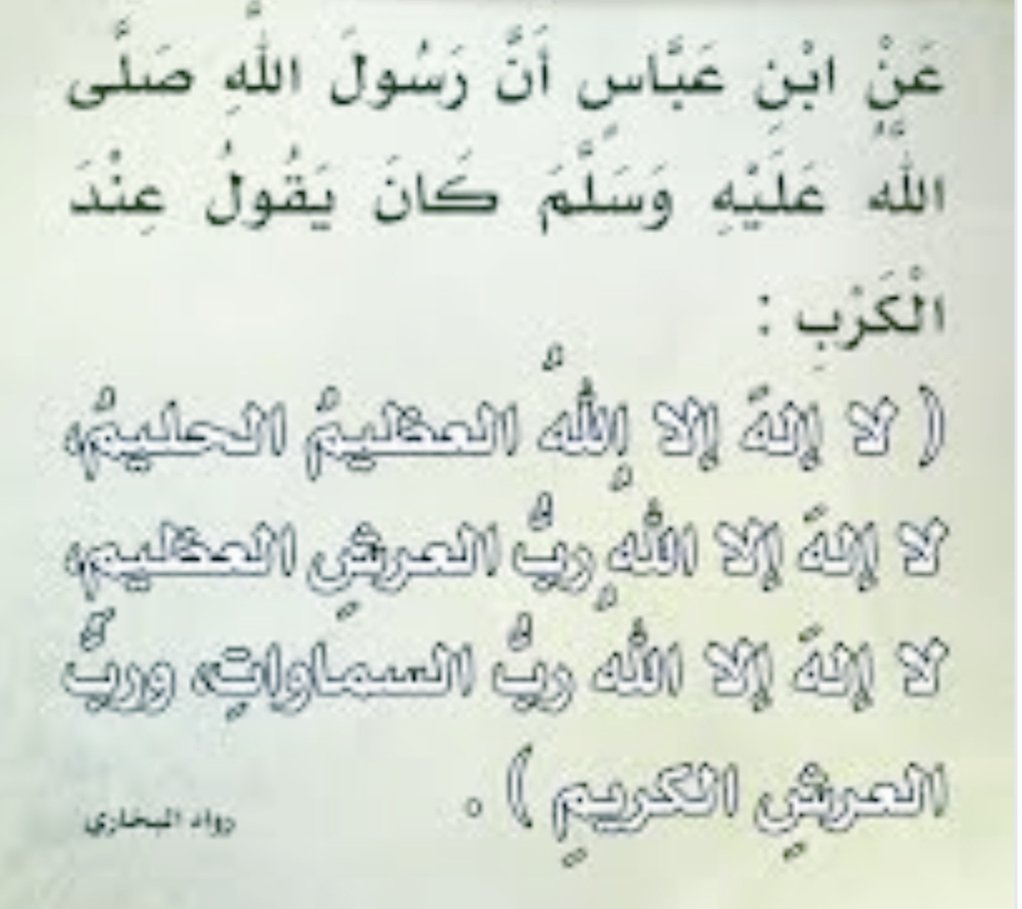 عَنْ ابْنِ عَبَّاسٍ أَنَّ رَسُولَ اللَّهِ صَلَّى
اللَّهُ عَلَيْهِ وَسَلَّمَ كَانَ يَقُولُ عِنْدَ
الْكَرْبِ :
( لا إلهَ إلا اللهُ العظيمُ الحليمُ،
لا إلهَ إلا اللهُ ربُّ العرشِ العظيمِ،
لا إلهَ إلا اللهُ ربُّ السماواتِ، وربُّ
العرشِ الكريمِ ) .
رواه البخاري